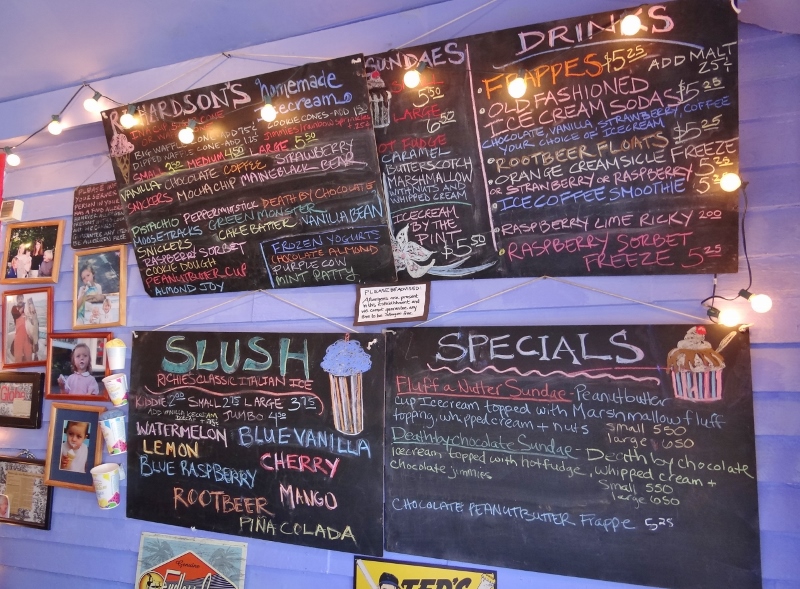 RICHARDSON'S homemade
icecream
BIG WAFFLE CONE - ADD 75¢
DIPPED WAFFLE CONE - ADD
COOKIE CONES - ADD
Jimmies/rainbow sprinkles
SMALL MEDIUM LARGE 5.50
VANILLA CHOCOLATE COFFEE STRAWBERRY
SNYCKERS MOCHA CHIP MAINE BLACK BEAR
PISTACHIO PEPPERMINTSTICK DEATH BY CHOCOLATE
MOOSETRACKS GREEN MONSTER
SNICKERS CAKE BATTER VANILLA BEAN
RASPBERRY SORBET
COOKIE DOUGH
PEANUTBUTTER CUP
ALMOND JOY
FROZEN YOGURTS
CHOCOLATE ALMOND
PURPLE COW
MINT PATTY
SUNDAES
5.50
LARGE
6.50
HOT FUDGE
CARAMEL
BUTTERSCOTCH
MARSHMALLOW
WITH NUTS AND
WHIPPED CREAM
ICECREAM
BY THE
PINT
$5.50
DRINKS
FRAPPES $5.25 ADD MALT
25¢
OLD FASHIONED
ICE CREAM SODAS $5.25
CHOCOLATE, VANILLA, STRAWBERRY, COFFEE
YOUR CHOICE OF ICECREAM
ROOTBEER FLOATS $5.25
ORANGE CREAMSICLE FREEZE
OR STRAWBERRY OR RASPBERRY 5.25
ICE COFFEE SMOOTHIE 5.25
RASPBERRY LIME RICKY 2.00
RASPBERRY SORBET
FREEZE 5.25
PLEASE BE ADVISED:
Allergens are present
in this establishment and
we cannot guarantee any
item to be allergen free.
SLUSH
RICHIES CLASSIC ITALIAN ICE
KIDDIE 2.00 SMALL 2.75 LARGE 3.75
ADD VANILLA ICECREAM JUMBO 4.50
WATERMELON BLUE VANILLA
LEMON
BLUE RASPBERRY CHERRY
ROOTBEER MANGO
PIÑA COLADA
SPECIALS
Fluff a Nutter Sundae - Peanutbutter
cup Icecream topped with Marshmallow fluff
topping, whipped cream + nuts small 550
large 650
Death by chocolate Sundae - Death by chocolate
icecream topped with hot fudge, whipped cream +
chocolate jimmies small 550
large 650
CHOCOLATE PEANUTBUTTER Frappe 5.25
TED'S